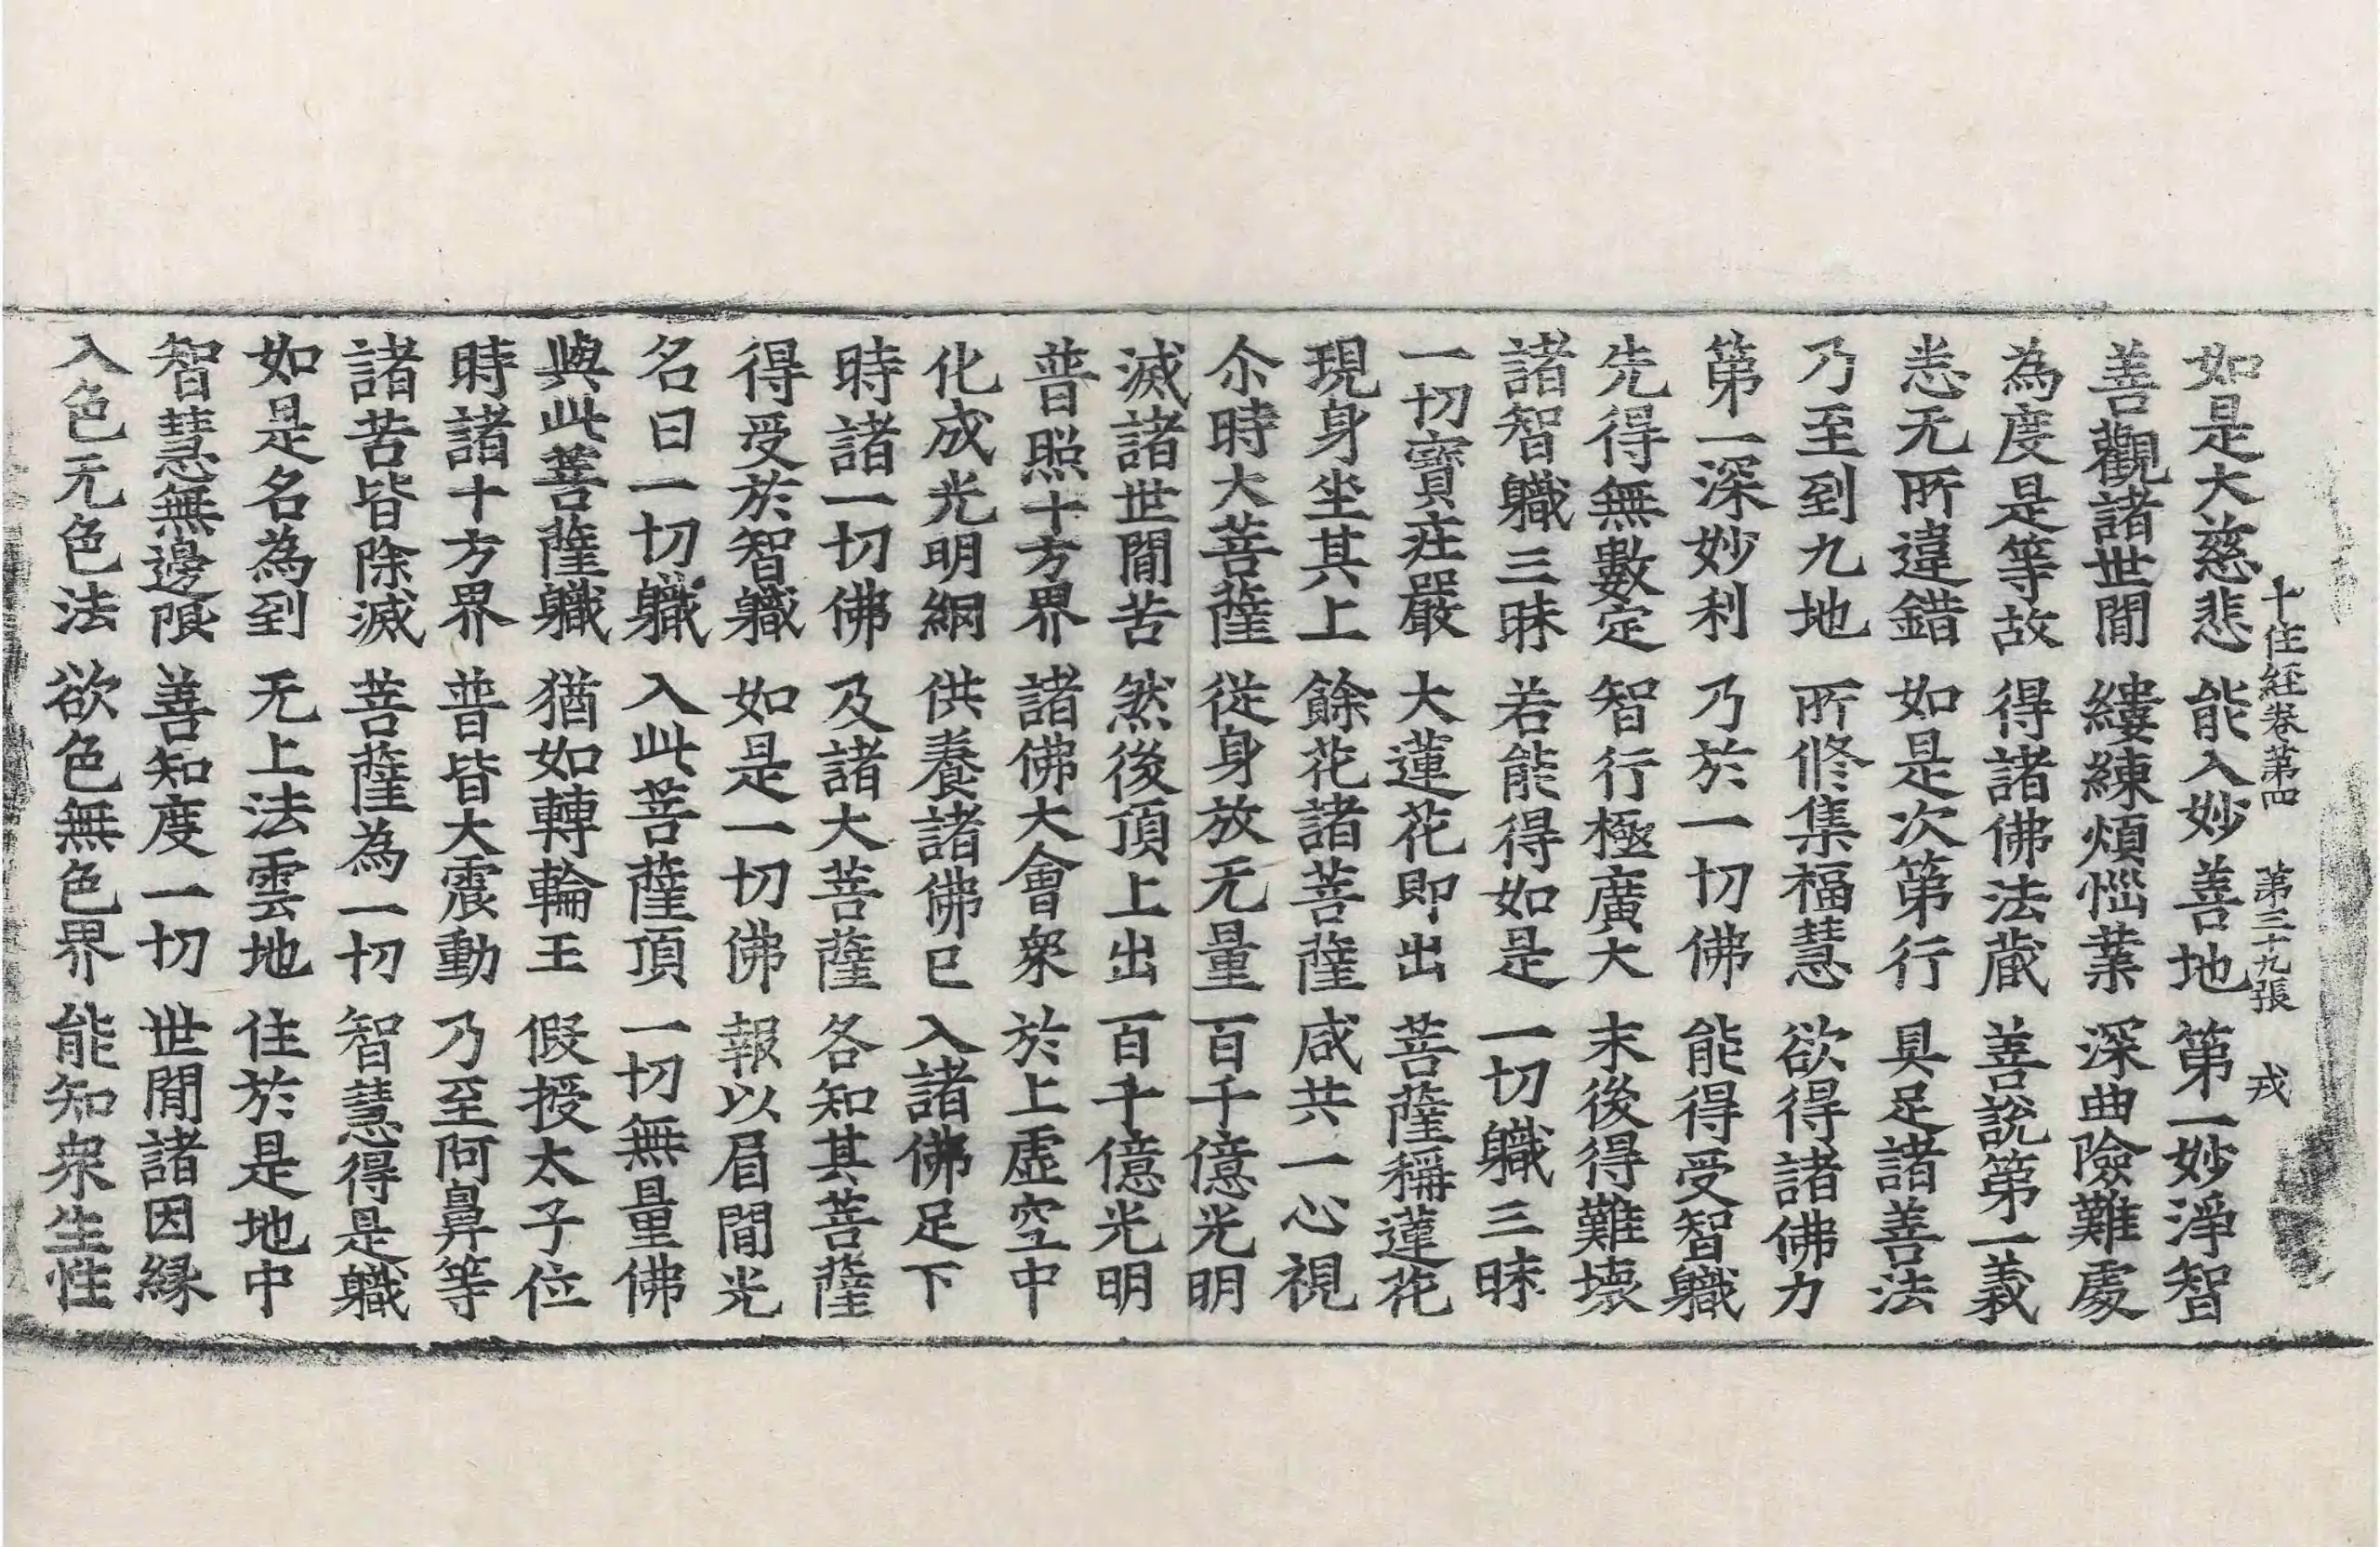 十住經卷第四 第三十九張 戎
如是大慈悲 能入妙善地 第一妙淨智
善觀諸世閒 縷練煩惱業 深曲險難處
為度是等故 得諸佛法藏 善說第一義
悉无所違錯 如是次第行 具足諸善法
乃至到九地 所修集福慧 欲得諸佛力
第一深妙利 乃於一切佛 能得受智軄
先得無數定 智行極廣大 末後得難壞
諸智軄三昧 若能得如是 一切軄三昧
一切寶莊嚴 大蓮花即出 菩薩稱蓮花
現身坐其上 餘花諸菩薩 咸共一心視
尒時大菩薩 從身放无量 百千億光明
滅諸世閒苦 然後頂上出 百千億光明
普照十方界 諸佛大會衆 於上虛空中
化成光明網 供養諸佛已 入諸佛足下
時諸一切佛 及諸大菩薩 各知其菩薩
得受於智軄 如是一切佛 報以眉閒光
名曰一切軄 入此菩薩頂 一切無量佛
與此菩薩軄 猶如轉輪王 假授太子位
時諸十方界 普皆大震動 乃至阿鼻等
諸苦皆除滅 菩薩為一切 智慧得是軄
如是名為到 无上法雲地 住於是地中
智慧無邊限 善知度一切 世閒諸因縁
入色无色法 欲色無色界 能知衆生性